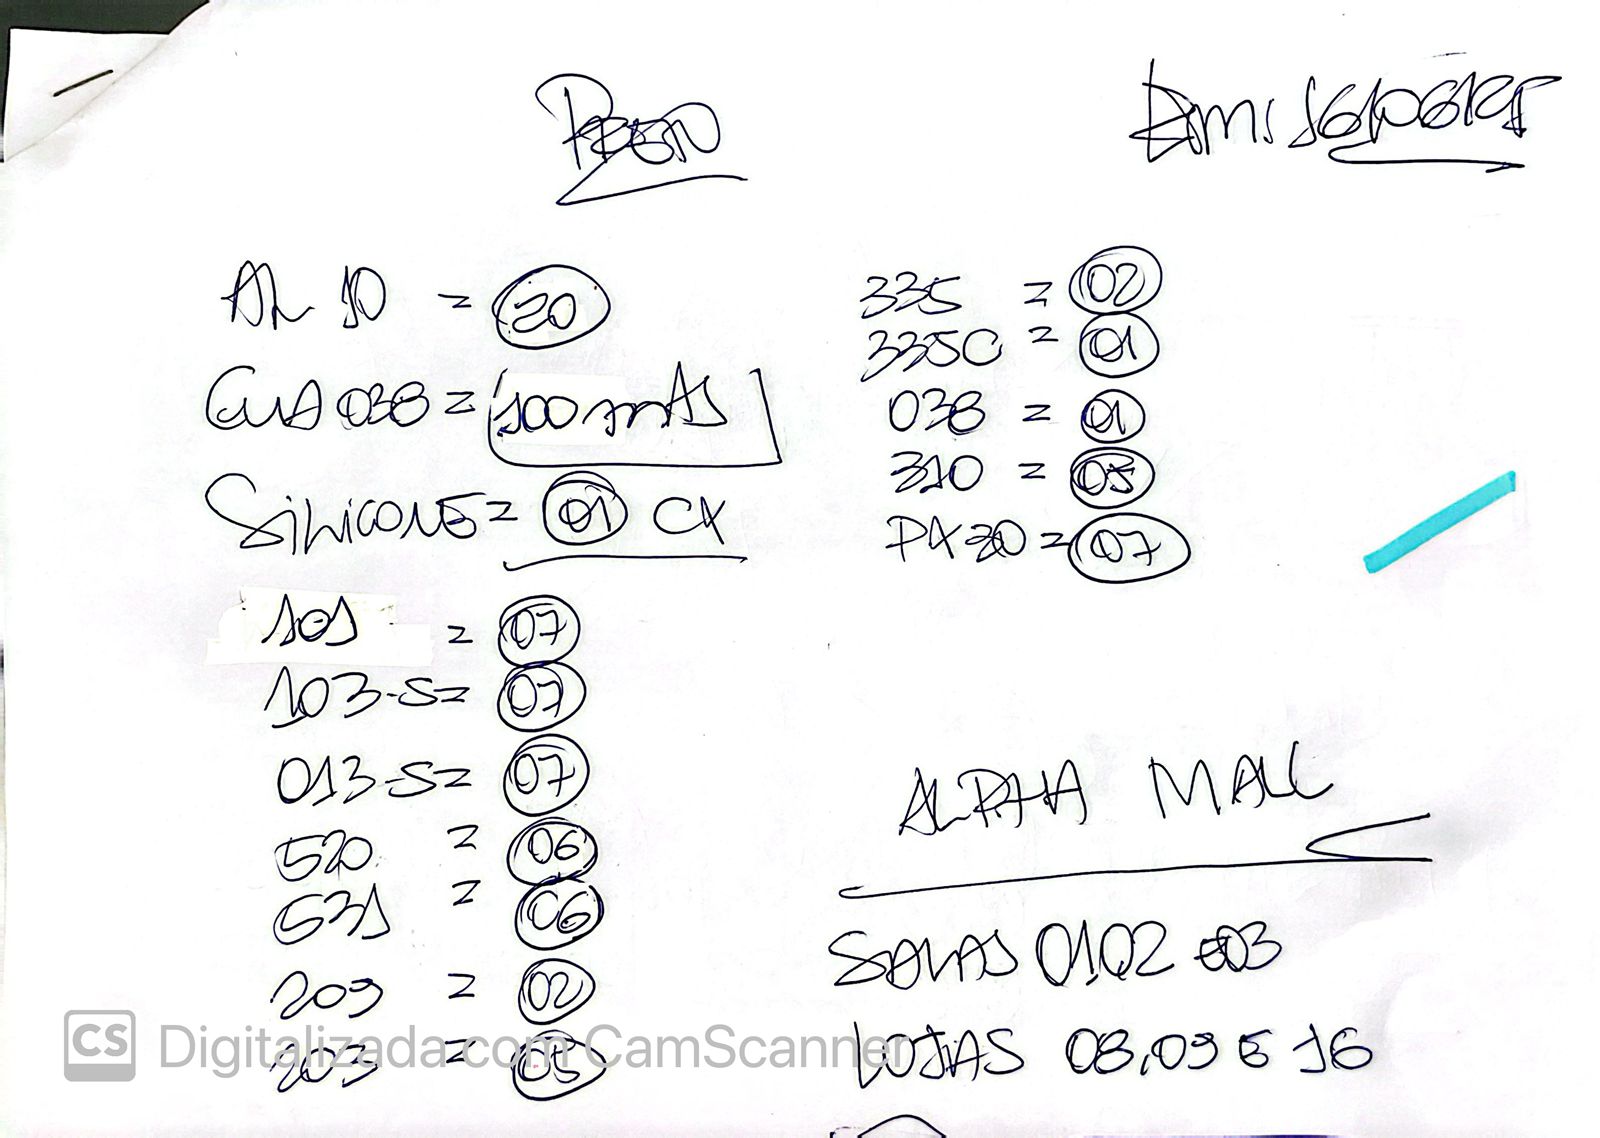 AL 10 = 20
GUA 038 = 100 mts
SiLiCONE = 01 CX
101 = 07
103-S = 07
013-S = 07
520 = 06
531 = 06
209 = 02
203 = 05
16/06/25
335 = 02
335C = 01
038 = 01
310 = 05
PX 30 = 07
ALPHA MALL
SALAS 01,02 e 03
LOJAS 08,09 E 16
CS Digitalizada com CamScanner